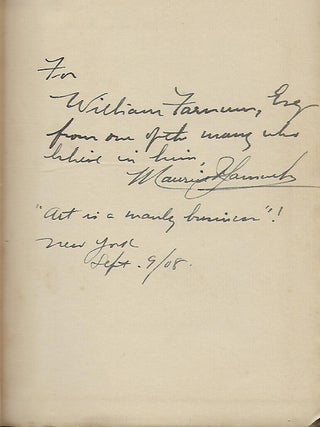 For
William Farnum, Esq
from one of the many who
believe in him,
Maurice
"Art is a manly business"!
New York
Sept. 9/08.